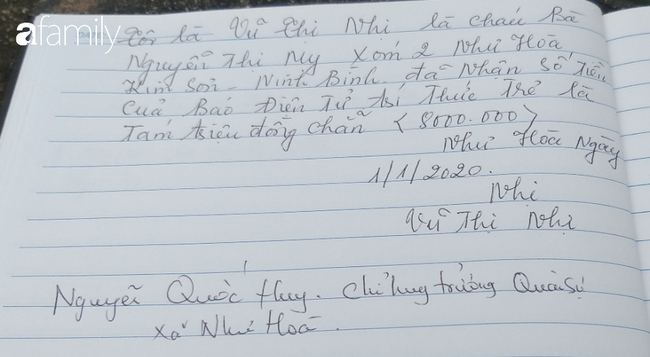 afamily
Tôi là Vũ Thị Nhi là cháu Bà
Nguyễn Thị Mỵ Xóm 2 Như Hoà
Kim Sơn - Ninh Bình. đã Nhân Số Tiền
Của Báo Điện Tử Trí Thức Trẻ là
Tám triệu đồng chẵn < 8000.000 >
Như Hoà Ngày
1/1/2020.
Nhi
Vũ Thị Nhị
Nguyễn Quốc Huy. Chỉ huy trưởng Quân sự
xã Như Hoà.